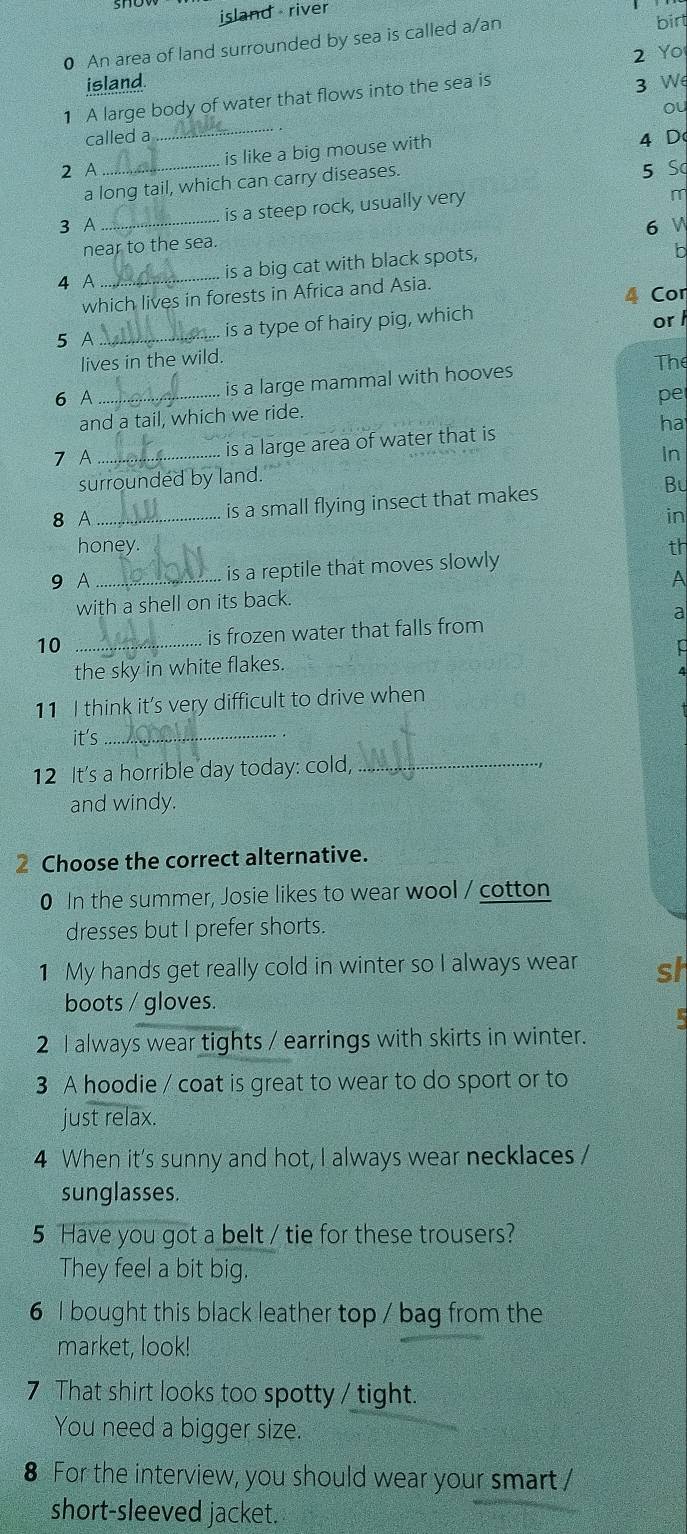 island - river
0 An area of land surrounded by sea is called a/an
island.
1 A large body of water that flows into the sea is
called a .
2 A is like a big mouse with
a long tail, which can carry diseases.
3 A is a steep rock, usually very
near to the sea.
4 A is a big cat with black spots,
which lives in forests in Africa and Asia.
5 A is a type of hairy pig, which
lives in the wild.
6 A is a large mammal with hooves
and a tail, which we ride.
7 A is a large area of water that is
surrounded by land.
8 A is a small flying insect that makes
honey.
9 A is a reptile that moves slowly
with a shell on its back.
10 is frozen water that falls from
the sky in white flakes.
11 I think it's very difficult to drive when
it's .
12 It's a horrible day today: cold, ,
and windy.
2 Choose the correct alternative.
0 In the summer, Josie likes to wear wool / cotton
dresses but I prefer shorts.
1 My hands get really cold in winter so I always wear
boots / gloves.
2 I always wear tights / earrings with skirts in winter.
3 A hoodie / coat is great to wear to do sport or to
just relax.
4 When it's sunny and hot, I always wear necklaces /
sunglasses.
5 Have you got a belt / tie for these trousers?
They feel a bit big.
6 I bought this black leather top / bag from the
market, look!
7 That shirt looks too spotty / tight.
You need a bigger size.
8 For the interview, you should wear your smart /
short-sleeved jacket.
birt
2 Yo
3 We
ou
4 Do
5 So
m
6 W
b
4 Cor
or
The
per
ha
In
Bu
in
th
A
a
p
4
t
sh
5